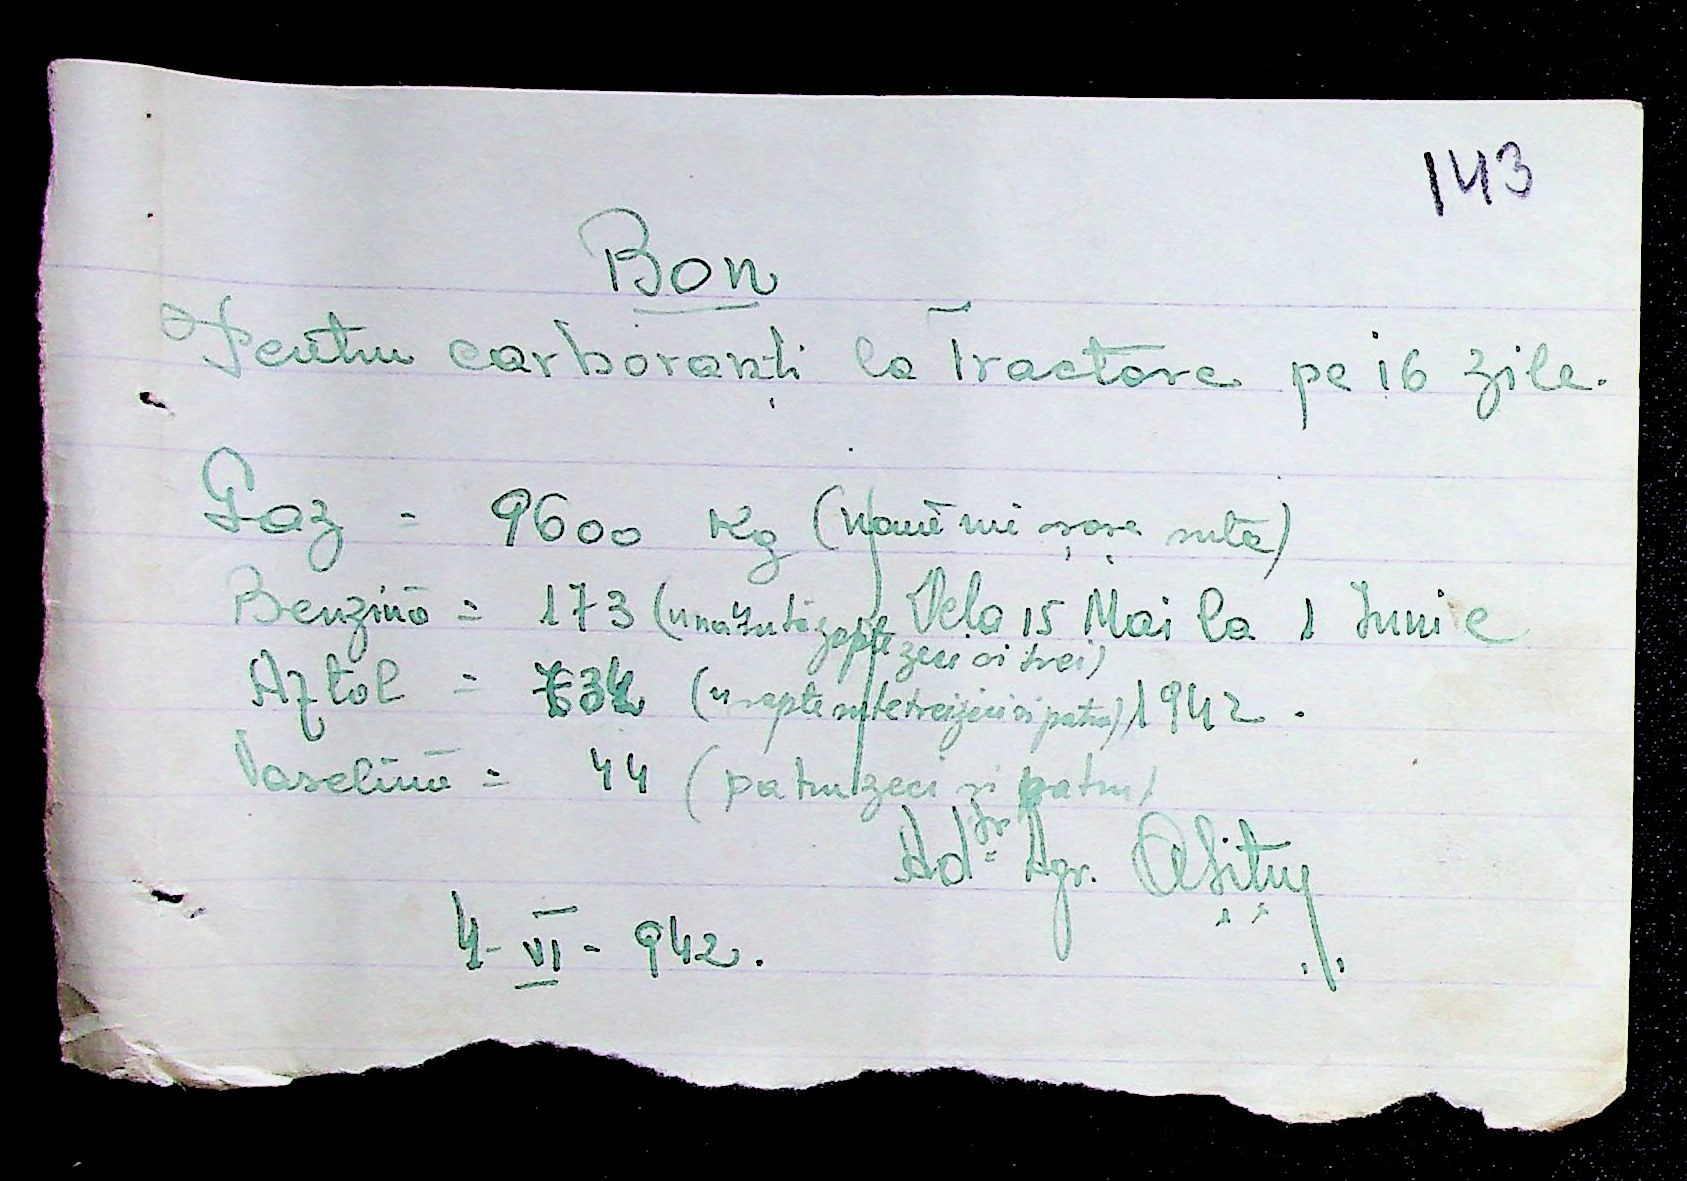 143
Bon
Pentru carboranți la Tractore pe 16 zile.
Gaz = 9600 Kg (nouē mi șașe sute)
Benzinō = 173 (una sutā șapte zeci si trei) Dela 15 Mai la 1 Iunie
Aztol = 734 (șapte sute treizeci si patru) 1942.
Vaselinō = 44 (patruzeci si patru)
Adtr Agr.
4-VI-942.